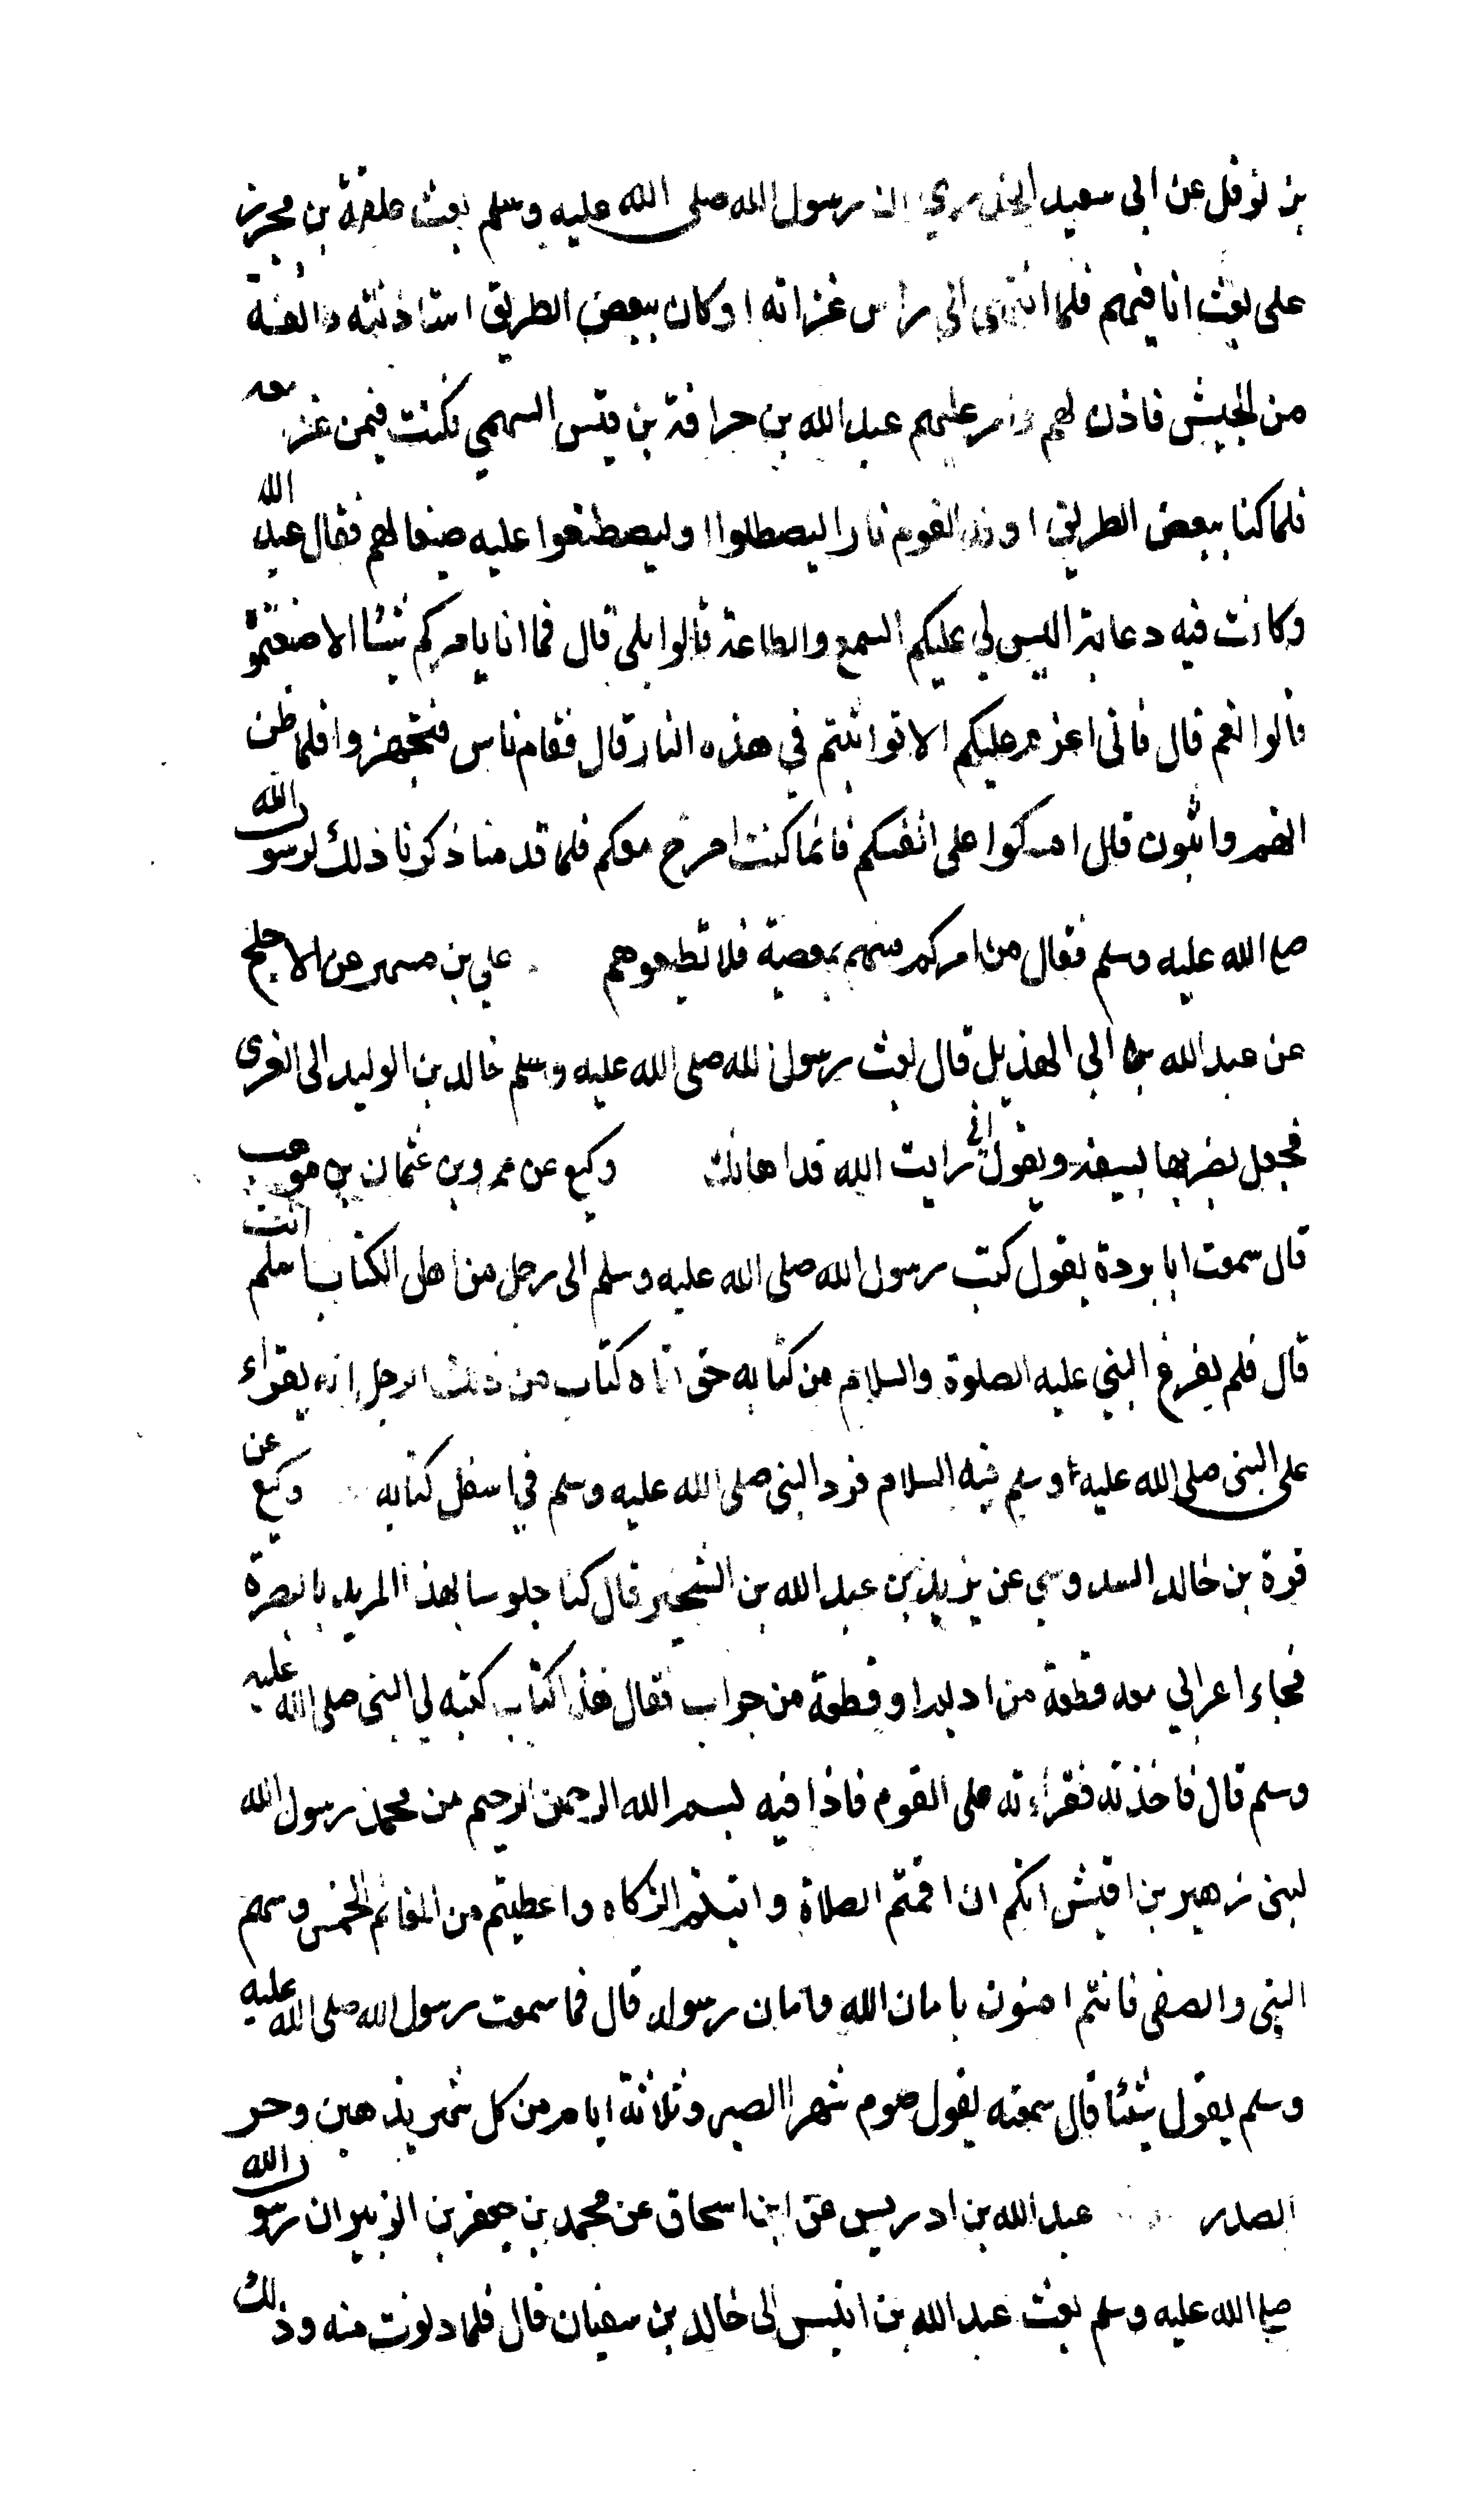 بن نوفل عن ابى سعيد الخدري ان رسول الله صلى الله عليه وسلم بعث علقمة بن محرز
على بعث انا فيهم فلما انتهى الى راس غزاته او كان ببعض الطريق استاذنته طائفة
من الجيش فاذن لهم وامر عليهم عبد الله بن حرافة بن قيس السهمي فكنت فيمن غزا معه
فلما كنا ببعض الطريق اوقد القوم نارا ليصطلوا او ليصطنعوا عليه صنيعا لهم فقال عبد الله
وكانت فيه دعابة اليس لي عليكم السمع والطاعة قالوا بلى قال فما انا يامركم شيئا الا صنعتمو
قالوا نعم قال فانى اعزم عليكم الا تواثبتم في هذه النار قال فقام ناس فتجهزوا فلما ظن
انهم واثبون قال امسكوا على انفسكم فانما كنت امزح معكم فلما قدمنا ذكرنا ذلك لرسول الله
صلى الله عليه وسلم فقال من امركم منهم بمعصية فلا تطيعوهم علي بن مسهر عن الاجلح
عن عبد الله بن ابي الهذيل قال بعث رسول الله صلى الله عليه وسلم خالد بن الوليد الى العزى
فجعل يضربها بسيفه ويقول انى رايت الله قد اهانك وكيع عن عمرو بن عثمان بن موهب
قال سمعت ابا بردة يقول كتب رسول الله صلى الله عليه وسلم الى رجل من اهل الكتاب اسلم انت
قال فلم يفرغ النبي عليه الصلوة والسلام من كتابه حتى اتاه كتاب من ذلك الرجل انه يقراء
على النبى صلى الله عليه وسلم فيه السلام فرد النبى صلى الله عليه وسلم في اسفل كتابه وكيع عن
قرة بن خالد السدوسي عن يزيد بن عبد الله بن الشخير قال كنا جلوسا بهذا المربد بالبصرة
فجاء اعرابي معه قطعة من اديم او قطعة من جراب فقال هذا كتاب كتبه لي النبى صلى الله عليه
وسلم قال فاخذته فقراءته على القوم فاذا فيه بسم الله الرحمن الرحيم من محمد رسول الله
لبنى زهير بن اقيش انكم ان اقمتم الصلاة واتيتم الزكاه واعطيتم من المغانم الخمس وسهم
النبى والصفى فانتم امنون بامان الله وامان رسوله قال فما سمعت رسول الله صلى الله عليه
وسلم يقول شيئا قال سمعته يقول صوم شهر الصبر وثلاثة ايام من كل شهر يذهبن وحر
الصدر عبد الله بن ادريس عن ابن اسحاق عن محمد بن جعفر بن الزبير ان رسول الله
صلى الله عليه وسلم بعث عبد الله بن انيس الى خالد بن سفيان قال فلما دنوت منه وذلك